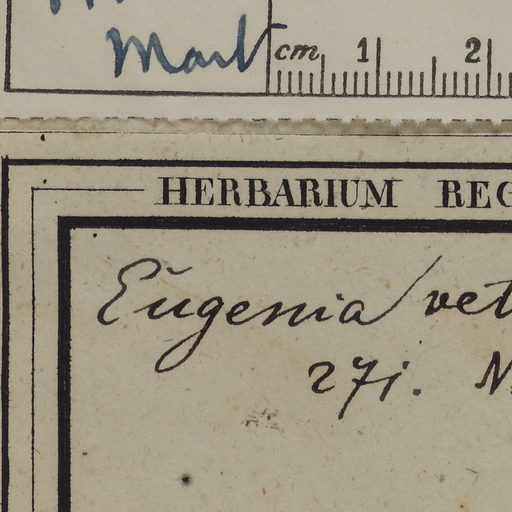 Mart
cm 1 2
HERBARIUM REG
Eŭgenia vet
271. N